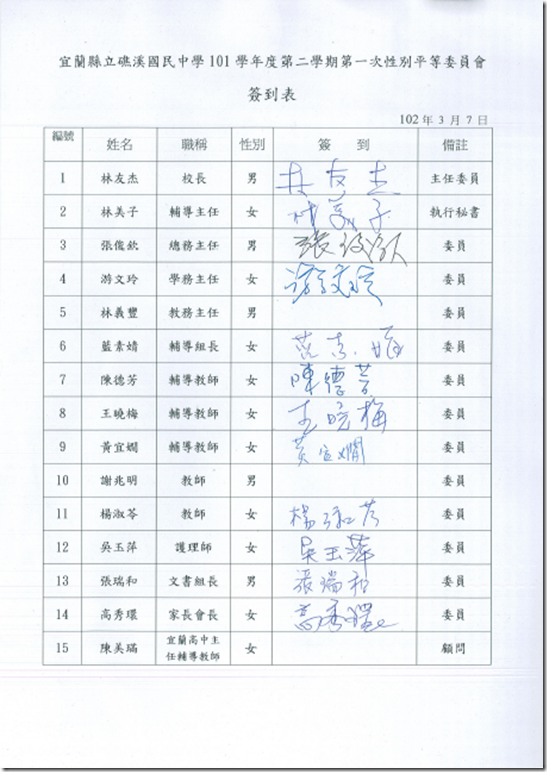 宜蘭縣立礁溪國民中學101學年度第二學期第一次性別平等委員會
簽到表
102年3月7日
編號 姓名 職稱 性別 簽 到 備註
1 林友杰 校長 男 林友杰 主任委員
2 林美子 輔導主任 女 林美子 執行秘書
3 張俊欽 總務主任 男 張俊欽 委員
4 游文玲 學務主任 女 游文玲 委員
5 林義豐 教務主任 男 委員
6 藍素婧 輔導組長 女 委員
7 陳德芳 輔導教師 女 陳德芳 委員
8 王曉梅 輔導教師 女 王曉梅 委員
9 黃宜嫺 輔導教師 女 黃宜嫺 委員
10 謝兆明 教師 男 委員
11 楊淑苓 教師 女 楊淑苓 委員
12 吳玉萍 護理師 女 吳玉萍 委員
13 張瑞和 文書組長 男 張瑞和 委員
14 高秀環 家長會長 女 高秀環 委員
15 陳美瑀 宜蘭高中主 女 顧問
任輔導教師